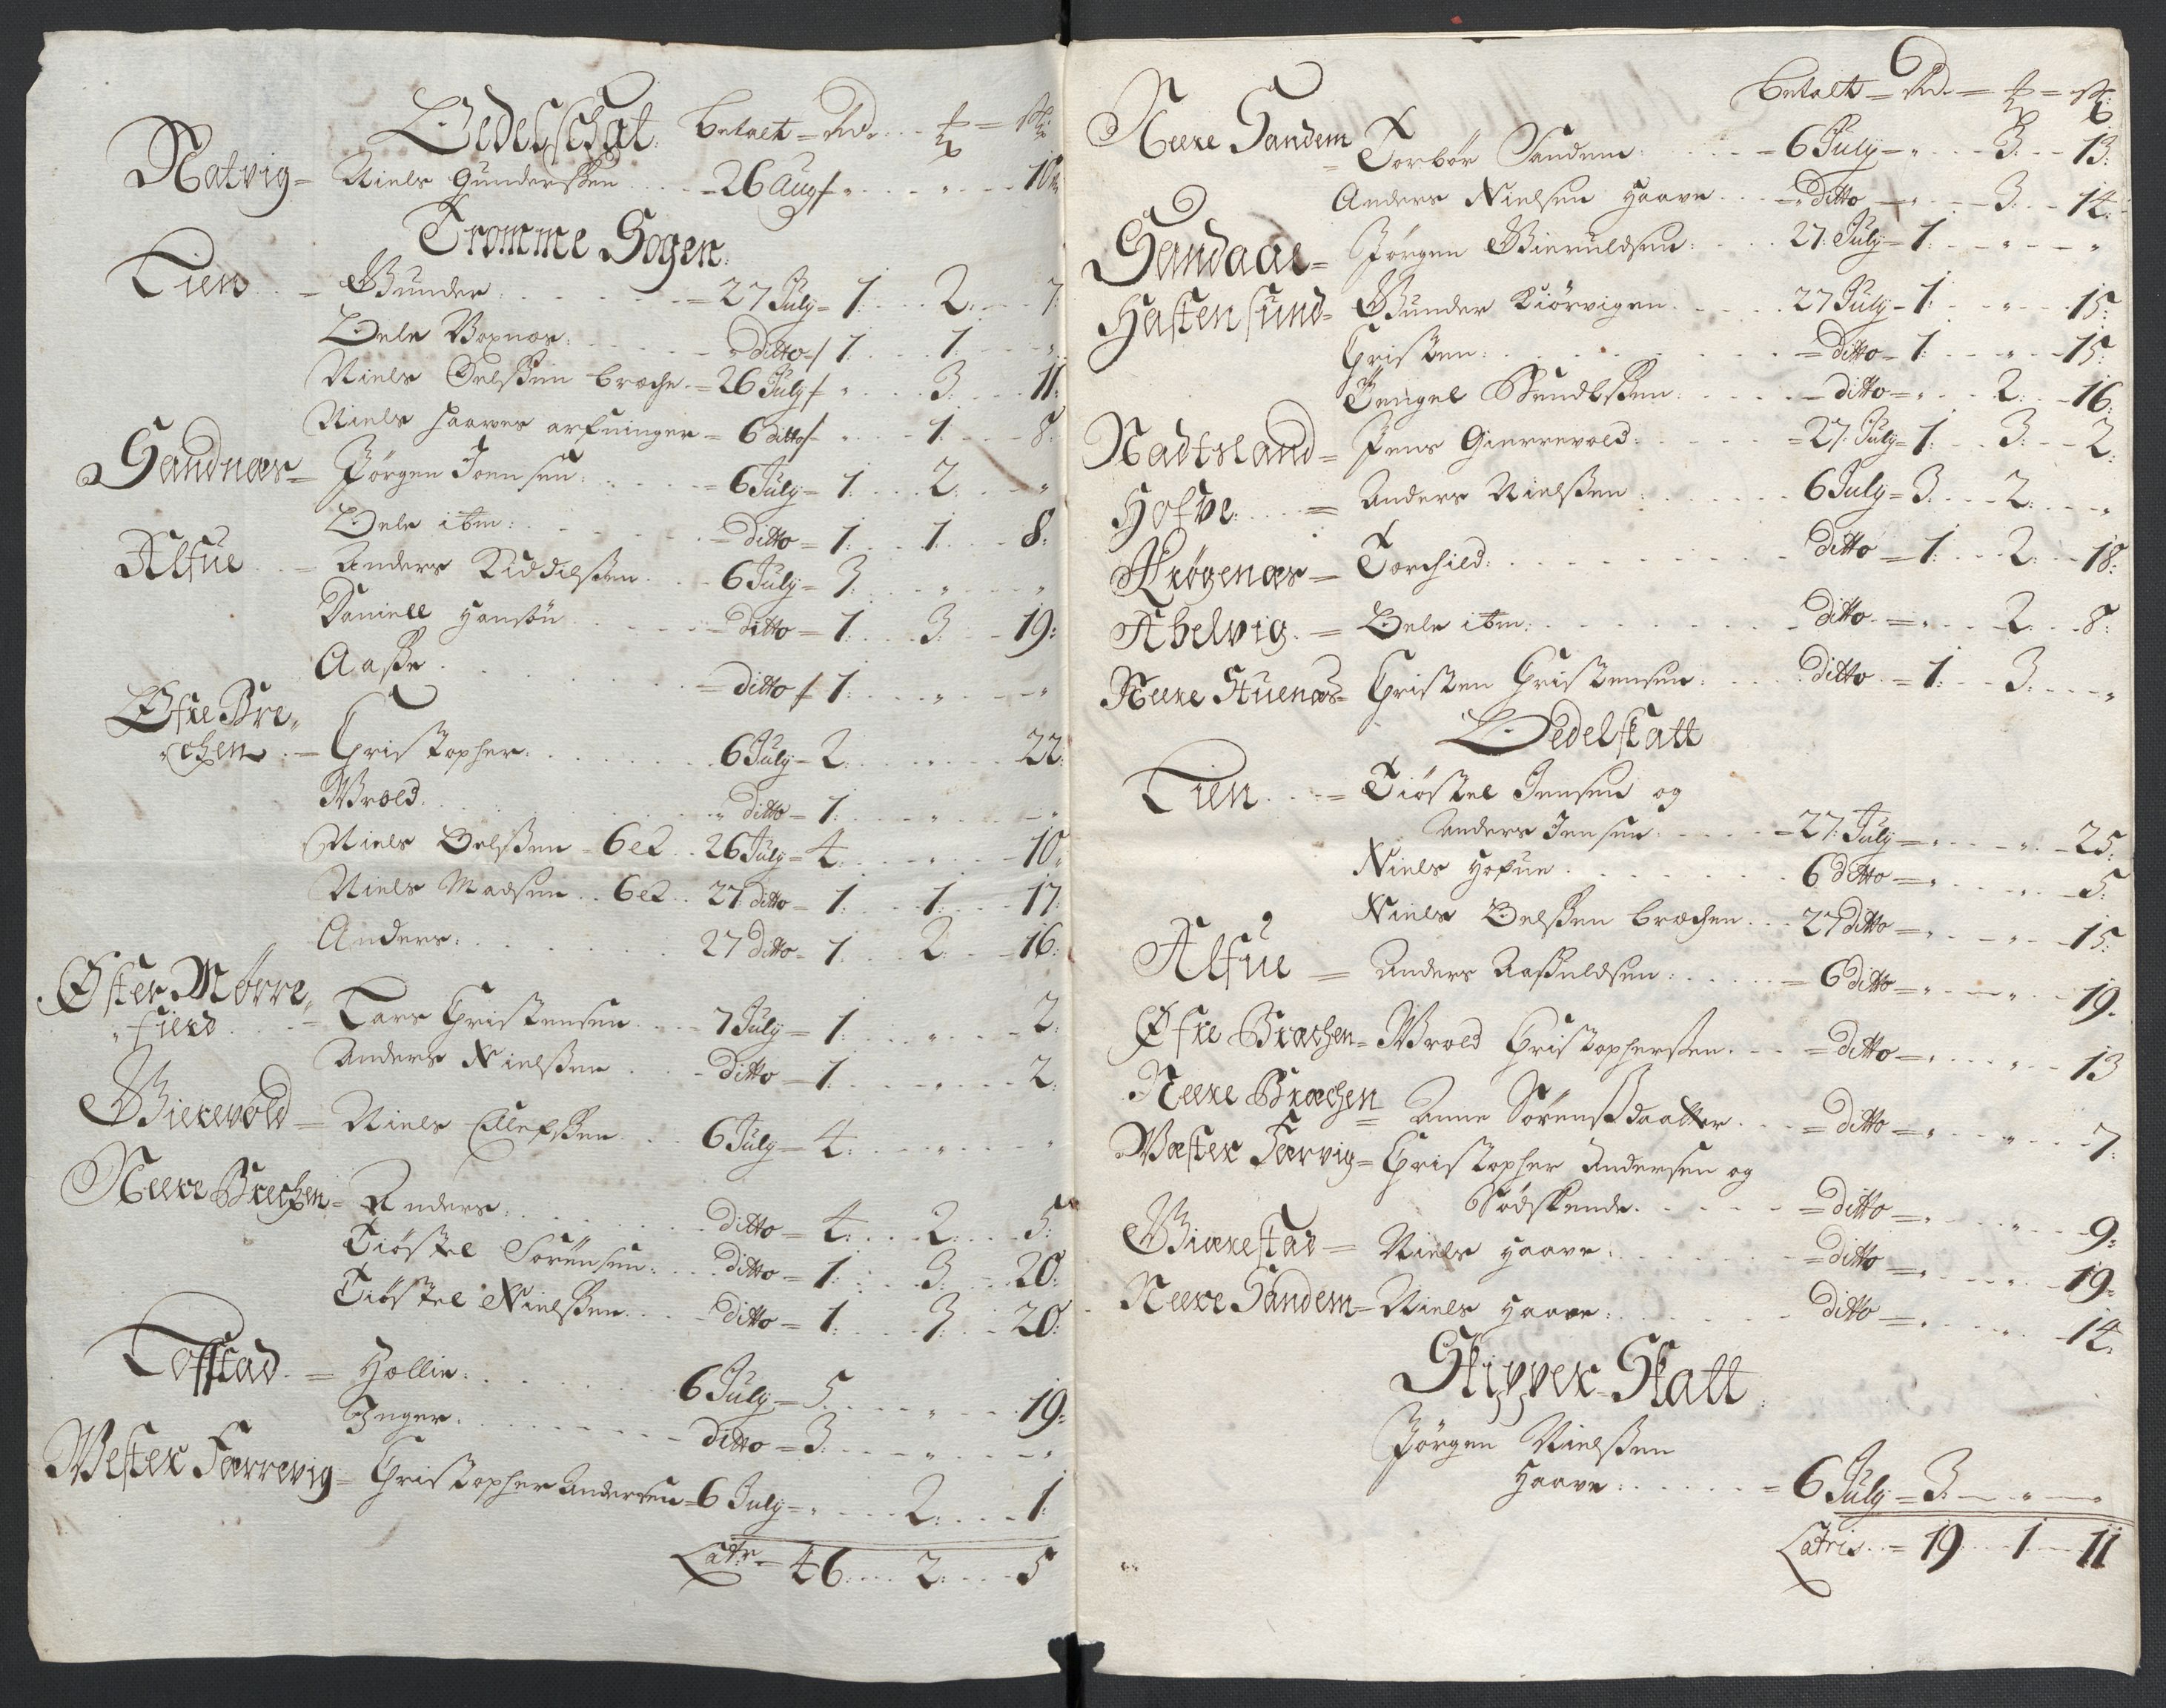 Oedelschat. betalt = Rd. = ß = sk
Natvig = Niels Gundersøn - 26 Aug - " - " - 10
Tromme Sogen.
Tien - Gunder - 27 July = 1: 2: 7:
Oele Bopnæs: - ditto - 1: 1: "
Niels Oelsen bræche = 26 July - " 3: 11:
Niels Haaves arfuinger = 6 ditto - " 1: 8:
Sandnæs = Jørgen Joensen: = 6 July = 1: 2: "
Oele ibm: - ditto = 1: 1: 8:
Alfue - Anders Kiddilsen - 6 July = 3: " "
Daniell Hansøn - ditto = 1: 3: 19:
Aasse - ditto - 1: " "
Øfre Bre-
chen - Christopher: 6 July = 2: " 22:
Wrold. " ditto = 1: " "
Niels Oelsen 6 e 2 26 July = 4: " 10:
Niels Madsen 6 e 2 27 ditto = 1: 1: 17:
Anders: 27 ditto = 1: 2: 16:
Øster Mørre-
fierd - Lars Christensen - 7 July = 1: " 2:
Anders Nielsen - ditto = 1: " 2:
Gierevold = Niels Ellefsen - 6 July = 4: " "
Neere Brechen = Anders: - ditto = 4: 2: 5:
Tiøstel Sørensen: ditto = 1: 3: 20:
Tiøstel Nielsen - ditto = 1: 3: 20:
Tofstad = Hellie: 6 July = 5: " 19:
Inger: ditto = 3: " "
Wester Færrevig = Christopher Andersen = 6 July = " 2: 1:
Lat.r = 46: 2: 5
6
betalt = Rd. = ß = sk
Neere Sandem = Torbør Sandem: = 6 July = " 3: 13:
Anders Nielsen Haave - ditto - " 3: 14:
Sandaae = Jørgen Gieruldsen: 27: July = 1: " "
Hastensund = Gunder Kiørvigen - 27 July = 1: " 15:
Christen: = ditto = 1: " 15:
Tengel Svendsen: - ditto = " 2: 16:
Nadtsland = Jens Gierrevold: = 27: July = 1: 3: 2:
Hofve: = Anders Nielsen: 6 July = 3: 2: "
Krøgenæs = Torchild: ditto = 1: 2: 18:
Abelvig. = Oele ibm: ditto. = " 2: 8:
Neere Stuenæs = Christen Christensen: ditto. = 1: 3: "
Oedelskatt
Tien = Tiøstel Jensen og
Anders Jensen: = 27: July = " " 25:
Niels Hofue 6 ditto = " " 5:
Niels Oelsen bræchen 27 ditto = " " 15:
Alfue = Anders Aasuldsen: = 6 ditto = " " 19:
Øfre Bræchen = Wrold Christophersen. = ditto = " " 13
Neere Bræchen = Anne Sørensdaatter = ditto = " " 7:
Wæster Færvig = Christopher Andersen og
Sødskende. = ditto = " " 9:
Giærestad = Niels Haave: = ditto = " " 19:
Neere Sandem = Niels Haave: ditto = " " 14:
Skipper Skatt
Jørgen Nielsen
Haave: = 6 July = 3: " "
Latris = 19 1 11